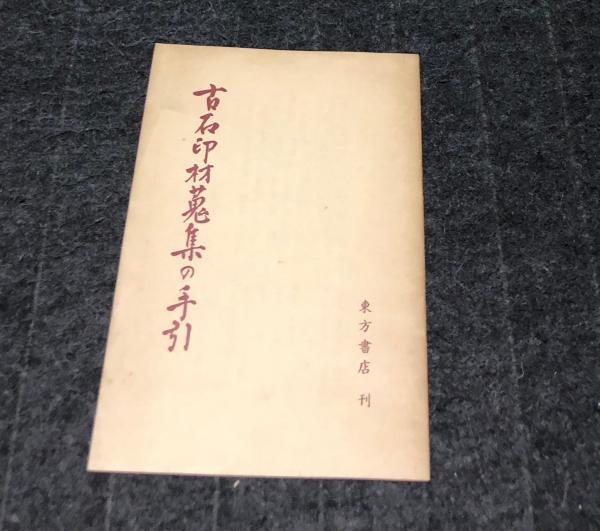 古石印材蒐集の手引
東方書店 刊